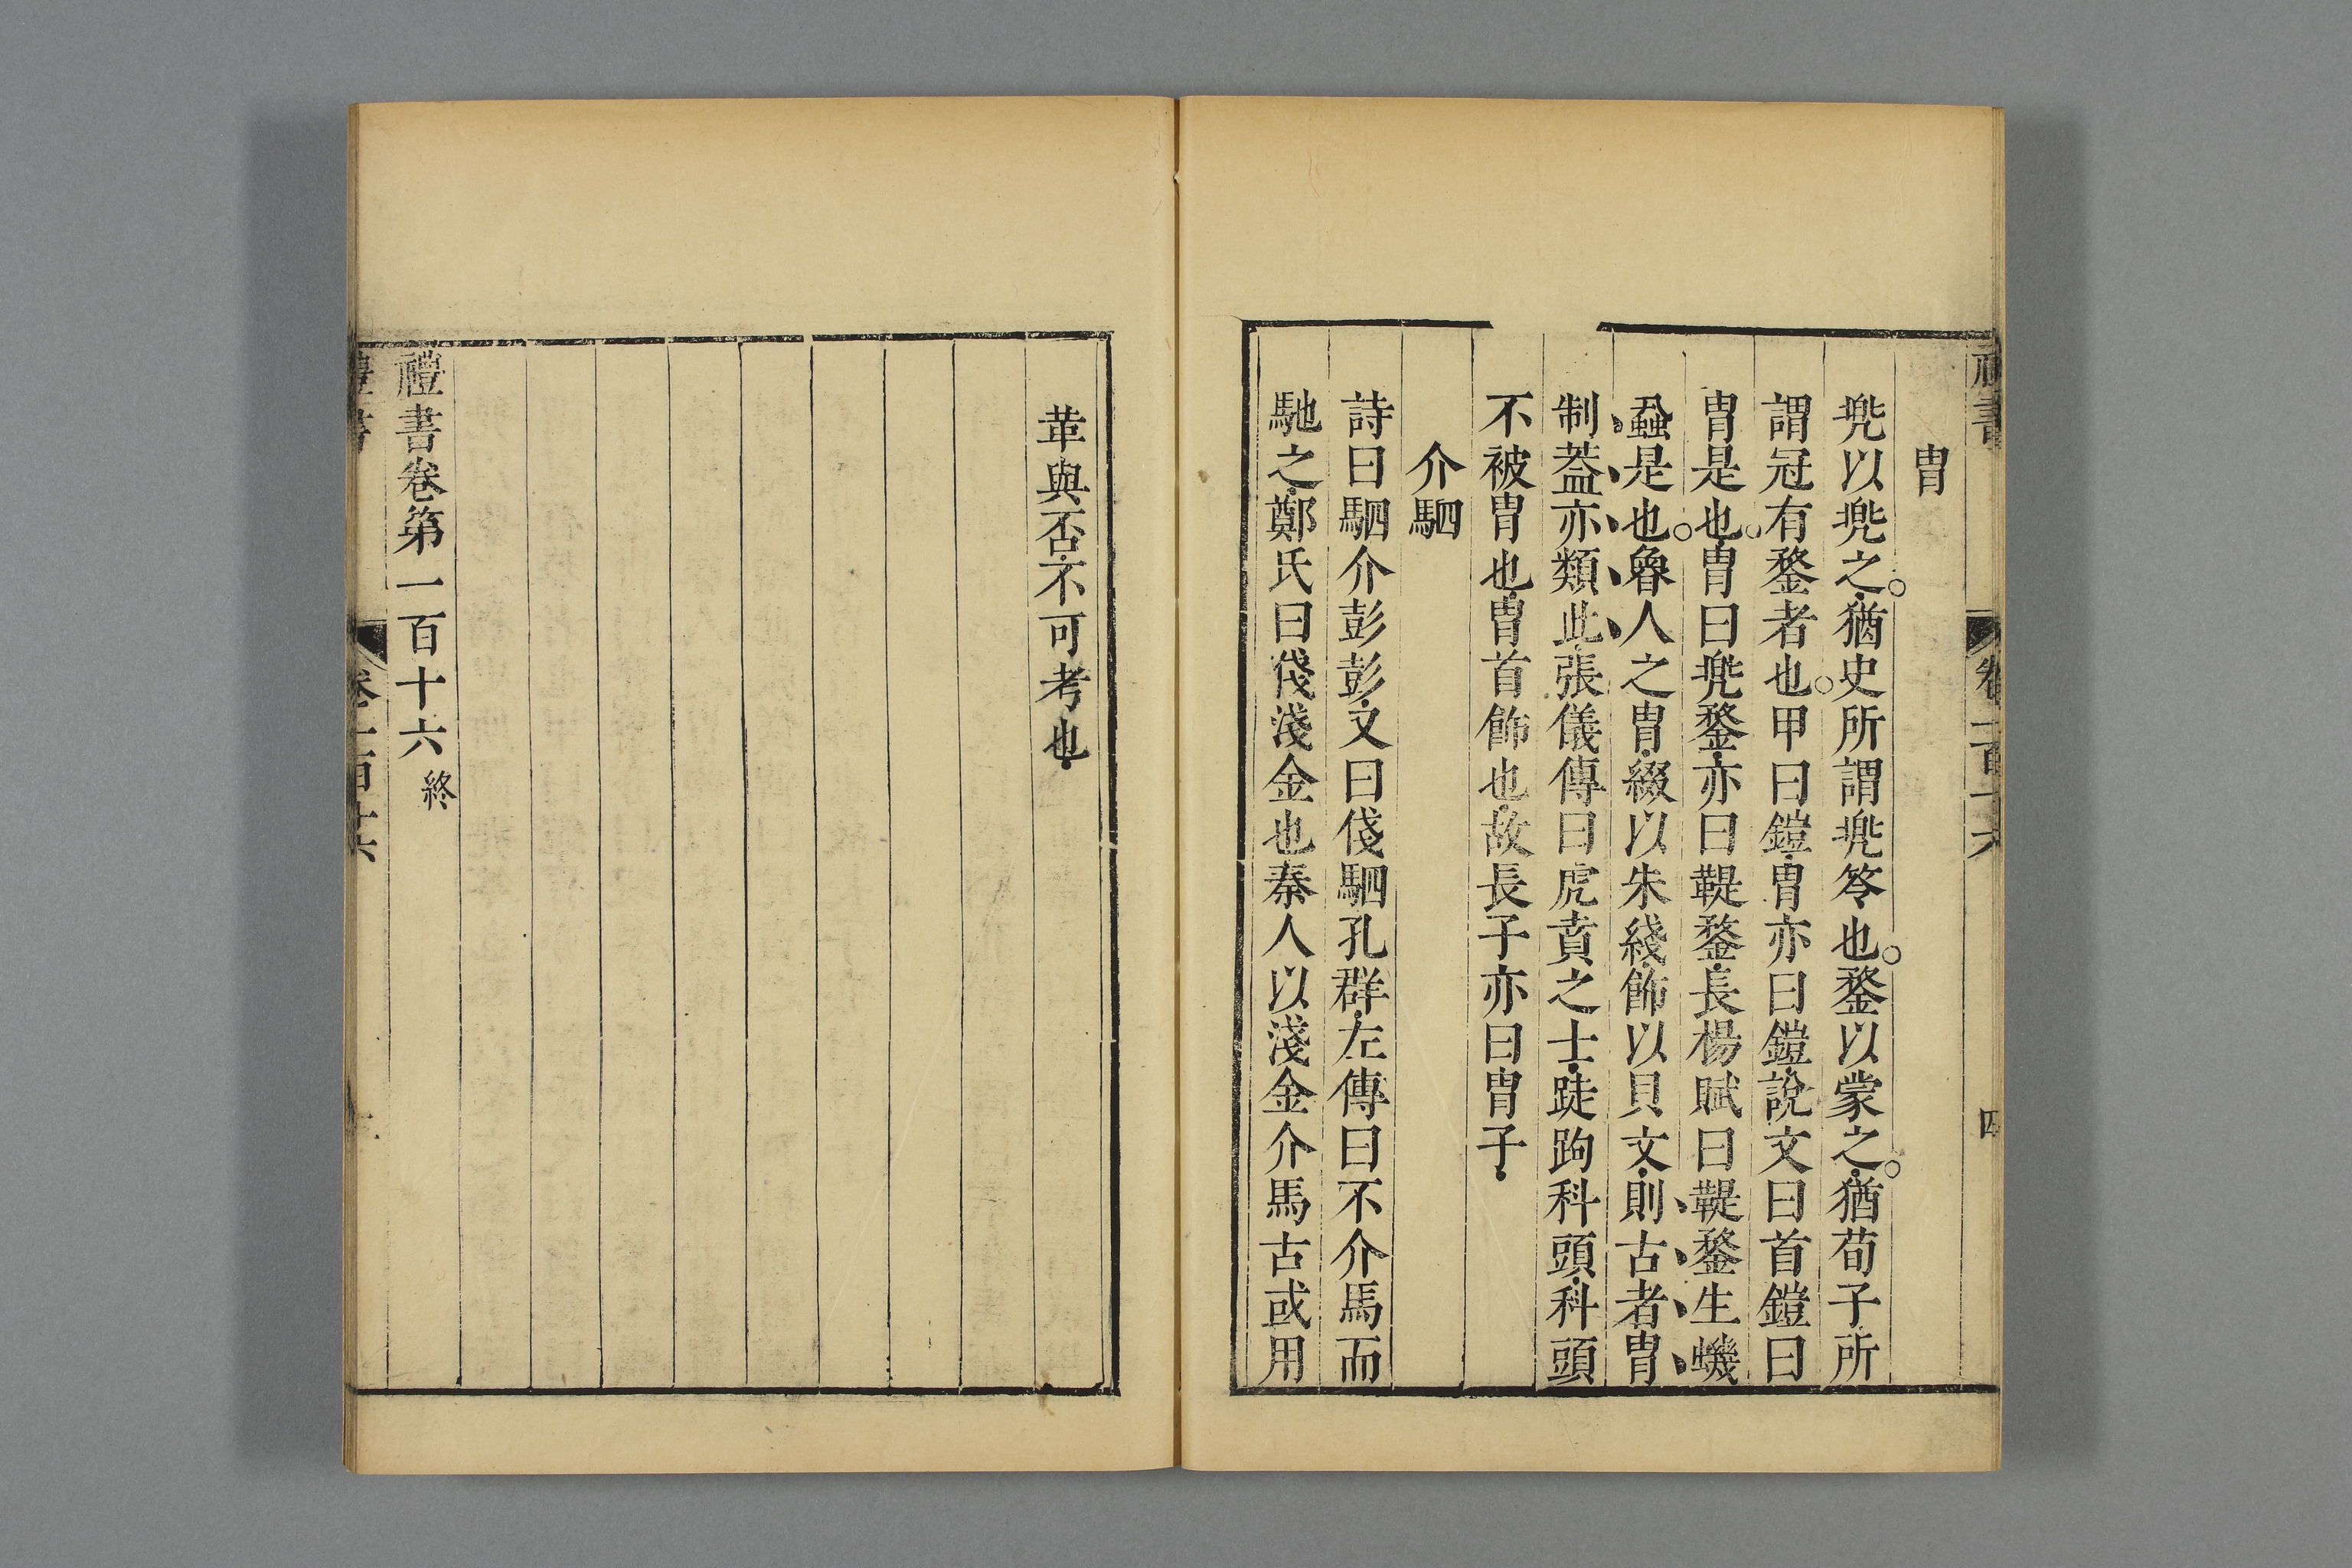 禮書
卷一百十六
四
冑
兠以兠之猶史所謂兠笭也鍪以蒙之猶荀子所
謂冠有鍪者也甲曰鎧冑亦曰鎧說文曰首鎧曰
冑是也冑曰兠鍪亦曰鞮鍪長楊賦曰鞮鍪生蟣
蝨是也魯人之冑綴以朱綫飾以貝文則古者冑
制葢亦類此張儀傳曰虎賁之士跿跔科頭科頭
不被冑也冑首飾也故長子亦曰冑子
介駟
詩曰駟介彭彭又曰俴駟孔群左傳曰不介馬而
馳之鄭氏曰俴淺金也秦人以淺金介馬古或用
革與否不可考也
禮書卷第一百十六終
禮書
卷一百十六